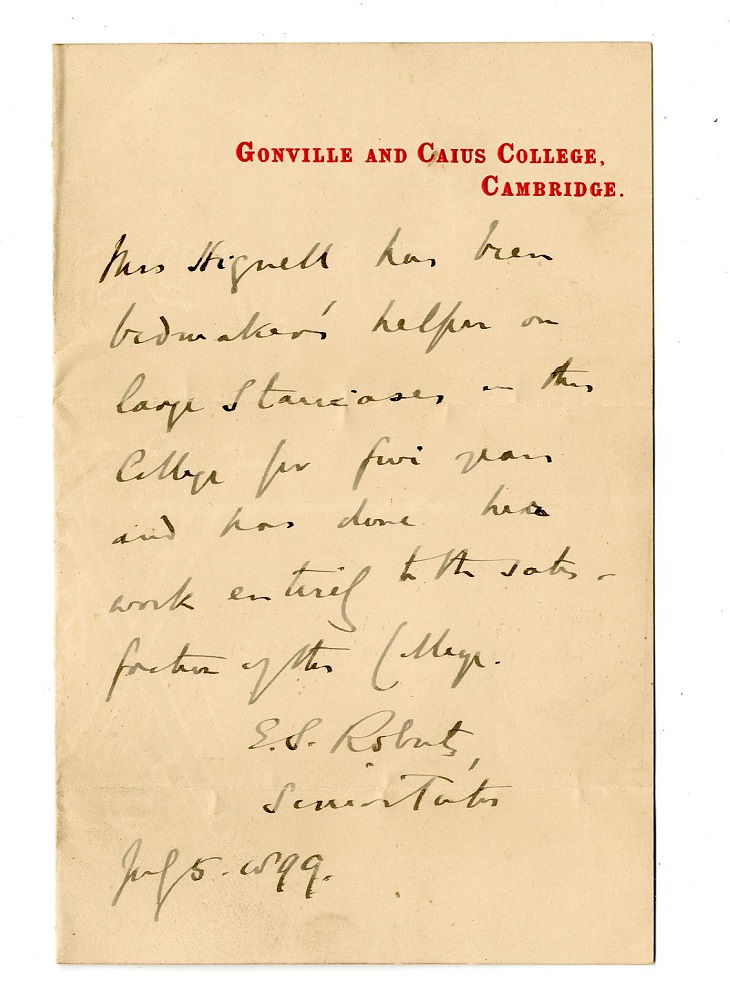 GONVILLE AND CAIUS COLLEGE,
CAMBRIDGE.
Mrs Hignell has been
bedmaker's helper on
large Staircases in this
College for five years
and has done her
work entirely to the satis-
faction of the College.
E.S. Roberts,
Senior Tutor
July 5. 1899.